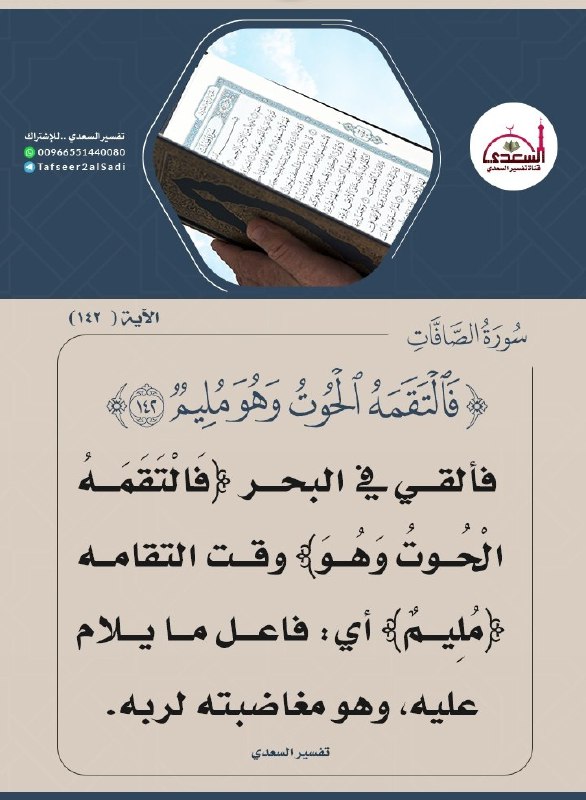 تفسير السعدي ..للإشتراك
00966551440080
Tafseer2alSadi
السعدي
قناة تفسير السعدي
الآية ( ١٤٢)
سُورَةُ الصَّافَّاتِ
﴿ فَٱلۡتَقَمَهُ ٱلۡحُوتُ وَهُوَ مُلِيمٞ ١٤٢ ﴾
فألقي في البحر ﴿فَالْتَقَمَهُ
الْحُوتُ وَهُوَ﴾ وقت التقامه
﴿مُلِيمٌ﴾ أي: فاعل ما يلام
عليه، وهو مغاضبته لربه.
تفسير السعدي